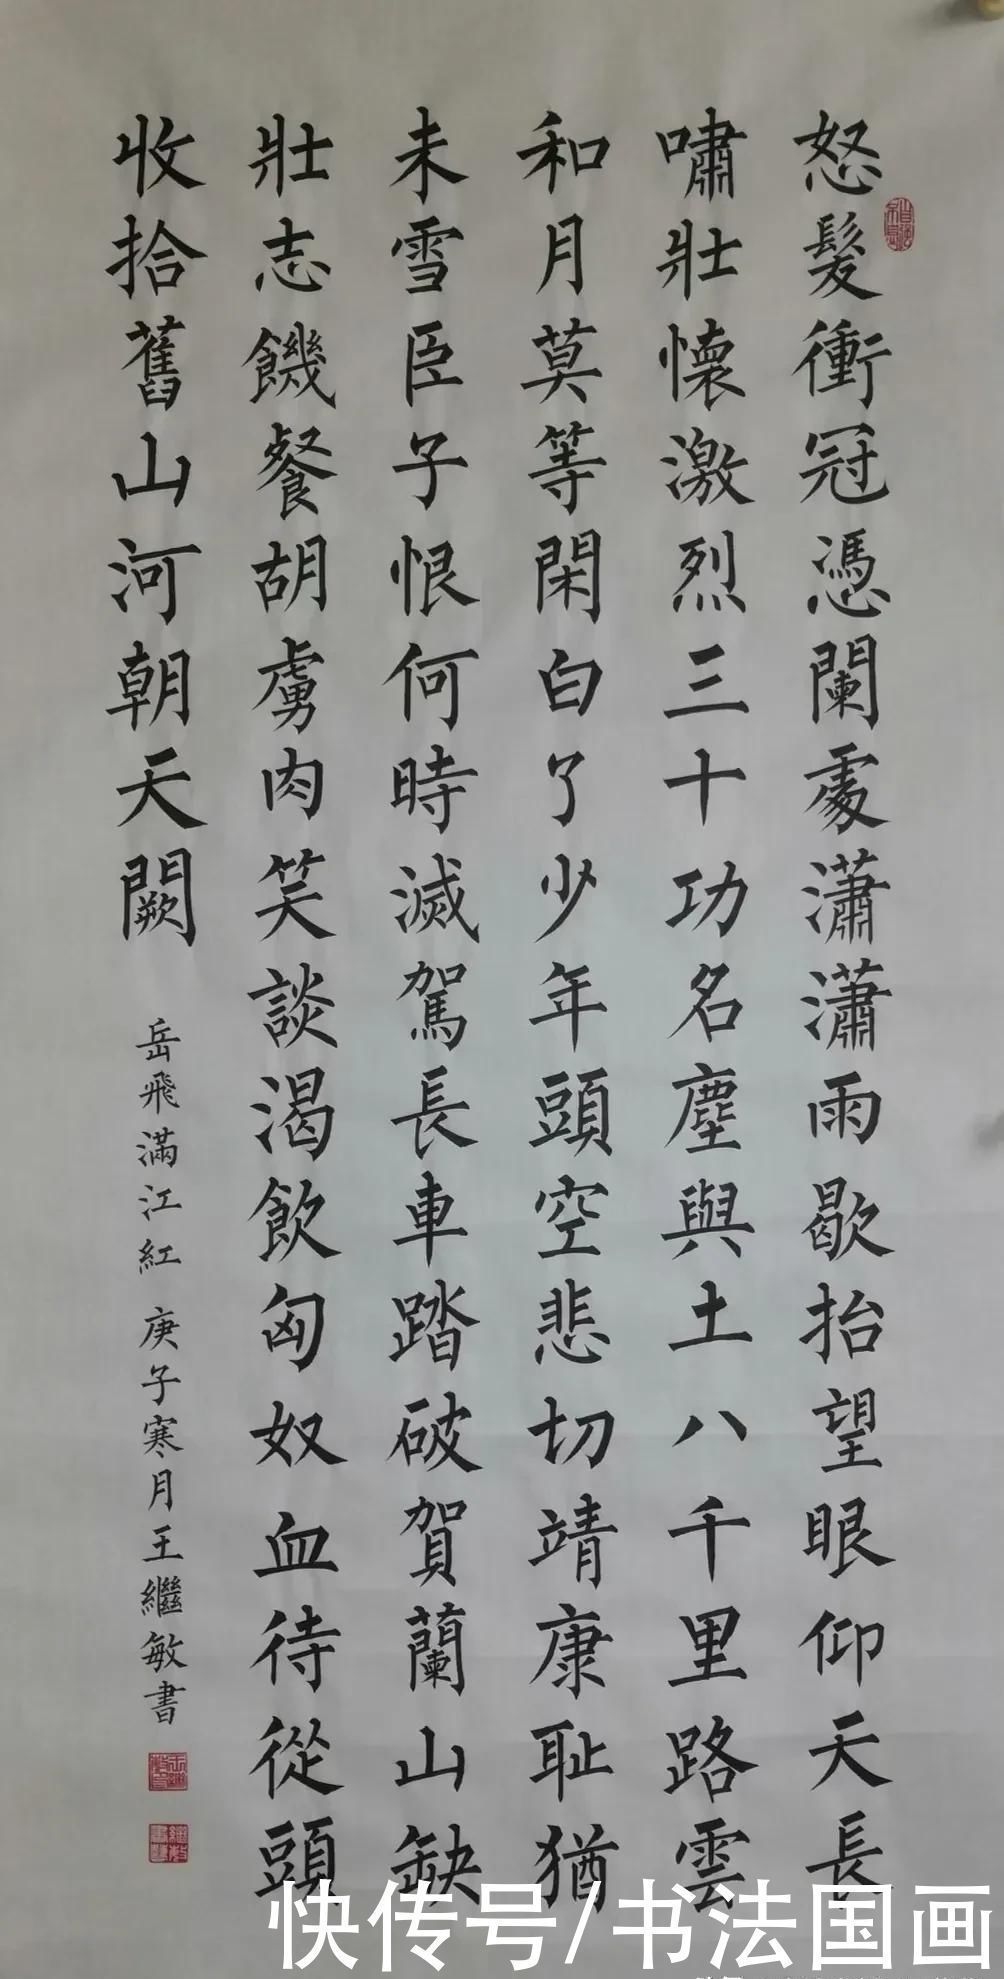 怒髮衝冠憑闌處瀟瀟雨歇抬望眼仰天長
嘯壯懷激烈三十功名塵與土八千里路雲
和月莫等閑白了少年頭空悲切靖康耻猶
未雪臣子恨何時滅駕長車踏破賀蘭山缺
壯志饑餐胡虜肉笑談渴飲匈奴血待從頭
收拾舊山河朝天闕
岳飛滿江紅 庚子寒月王繼敏書
快传号/书法国画